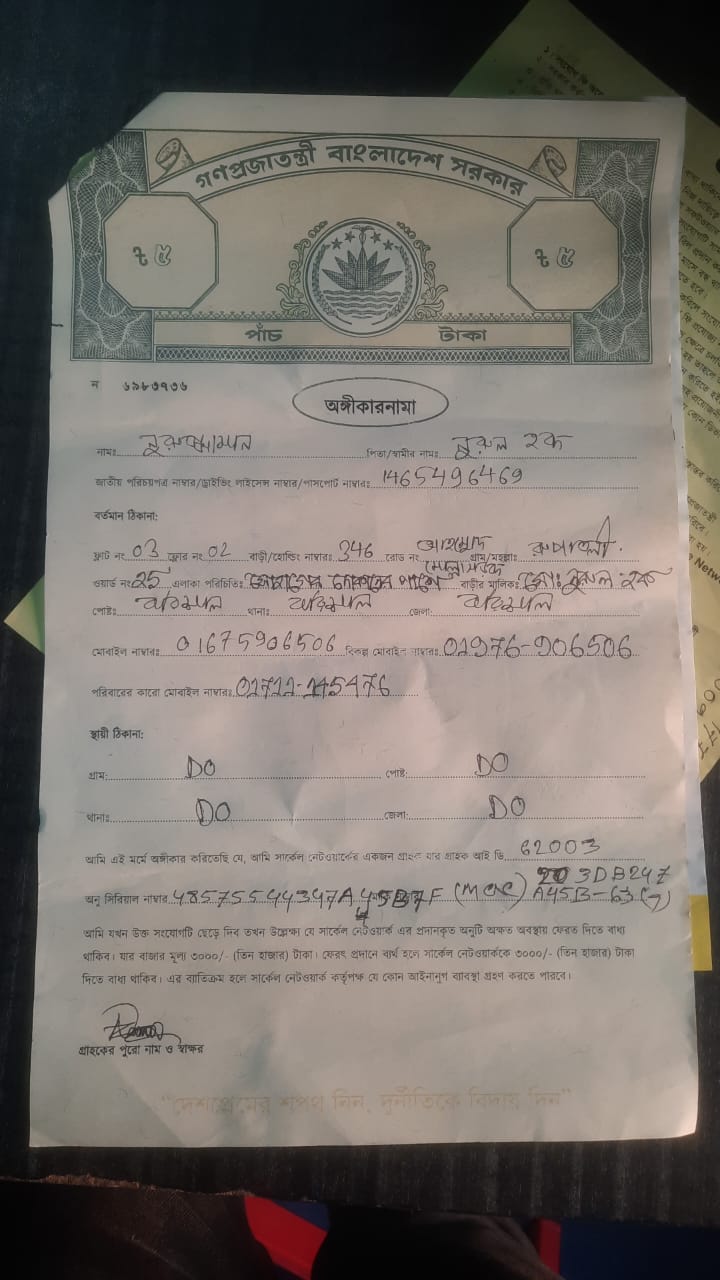 গণপ্রজাতন্ত্রী বাংলাদেশ সরকার
৳ ৫ ৳ ৫
পাঁচ টাকা
ন ৬৯৮৩৭৩৬
অঙ্গীকারনামা
নামঃ নুরুজ্জামান পিতা/স্বামীর নামঃ নুরুল হক
জাতীয় পরিচয়পত্র নাম্বার/ড্রাইভিং লাইসেন্স নাম্বার/পাসপোর্ট নাম্বারঃ 1465496469
বর্তমান ঠিকানা:
ফ্লাট নং 03 ফ্লোর নং 02 বাড়ী/হোল্ডিং নাম্বারঃ 346 রোড নং আহম্মেদ মোল্লা সড়ক গ্রাম/মহল্লাঃ রুপাতলী.
ওয়ার্ড নং 25 এলাকা পরিচিতিঃ পাশে বাড়ীর মালিকঃ মোঃ নুরুল হক
পোষ্টঃ বরিশাল থানাঃ বরিশাল জেলা: বরিশাল
মোবাইল নাম্বারঃ 01675906506 বিকল্প মোবাইল নাম্বারঃ 01976-906506
পরিবারের কারো মোবাইল নাম্বারঃ 01711-145476
স্থায়ী ঠিকানা:
গ্রাম: DO পোষ্ট: DO
থানাঃ DO জেলা: DO
আমি এই মর্মে অঙ্গীকার করিতেছি যে, আমি সার্কেল নেটওয়ার্কের একজন গ্রাহক যার গ্রাহক আই ডি 62003
3DB247
অনু সিরিয়াল নাম্বার 48575544347A45B7F (MAC) A45B-63(7)
আমি যখন উক্ত সংযোগটি ছেড়ে দিব তখন উল্লেক্ষ্য যে সার্কেল নেটওয়ার্ক এর প্রদানকৃত অনুটি অক্ষত অবস্থায় ফেরত দিতে বাধ্য
থাকিব। যার বাজার মূল্য ৩০০০/- (তিন হাজার) টাকা। ফেরৎ প্রদানে ব্যর্থ হলে সার্কেল নেটওয়ার্ককে ৩০০০/- (তিন হাজার) টাকা
দিতে বাধ্য থাকিব। এর ব্যাতিক্রম হলে সার্কেল নেটওয়ার্ক কর্তৃপক্ষ যে কোন আইনানুগ ব্যাবস্থা গ্রহণ করতে পারবে।
গ্রাহকের পুরো নাম ও স্বাক্ষর
"দেশপ্রেমের শপথ নিন, দুর্নীতিকে বিদায় দিন"